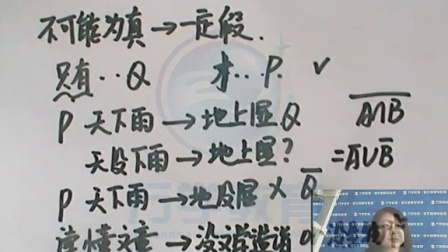 不可能为真→一定假.
只有··Q 才··P. √
P 天下雨→地上湿Q
A∩B
天没下雨→地上湿?
=A̅∪B̅
P 天下雨→地没湿 × Q̅
读懂文章→没文学造诣